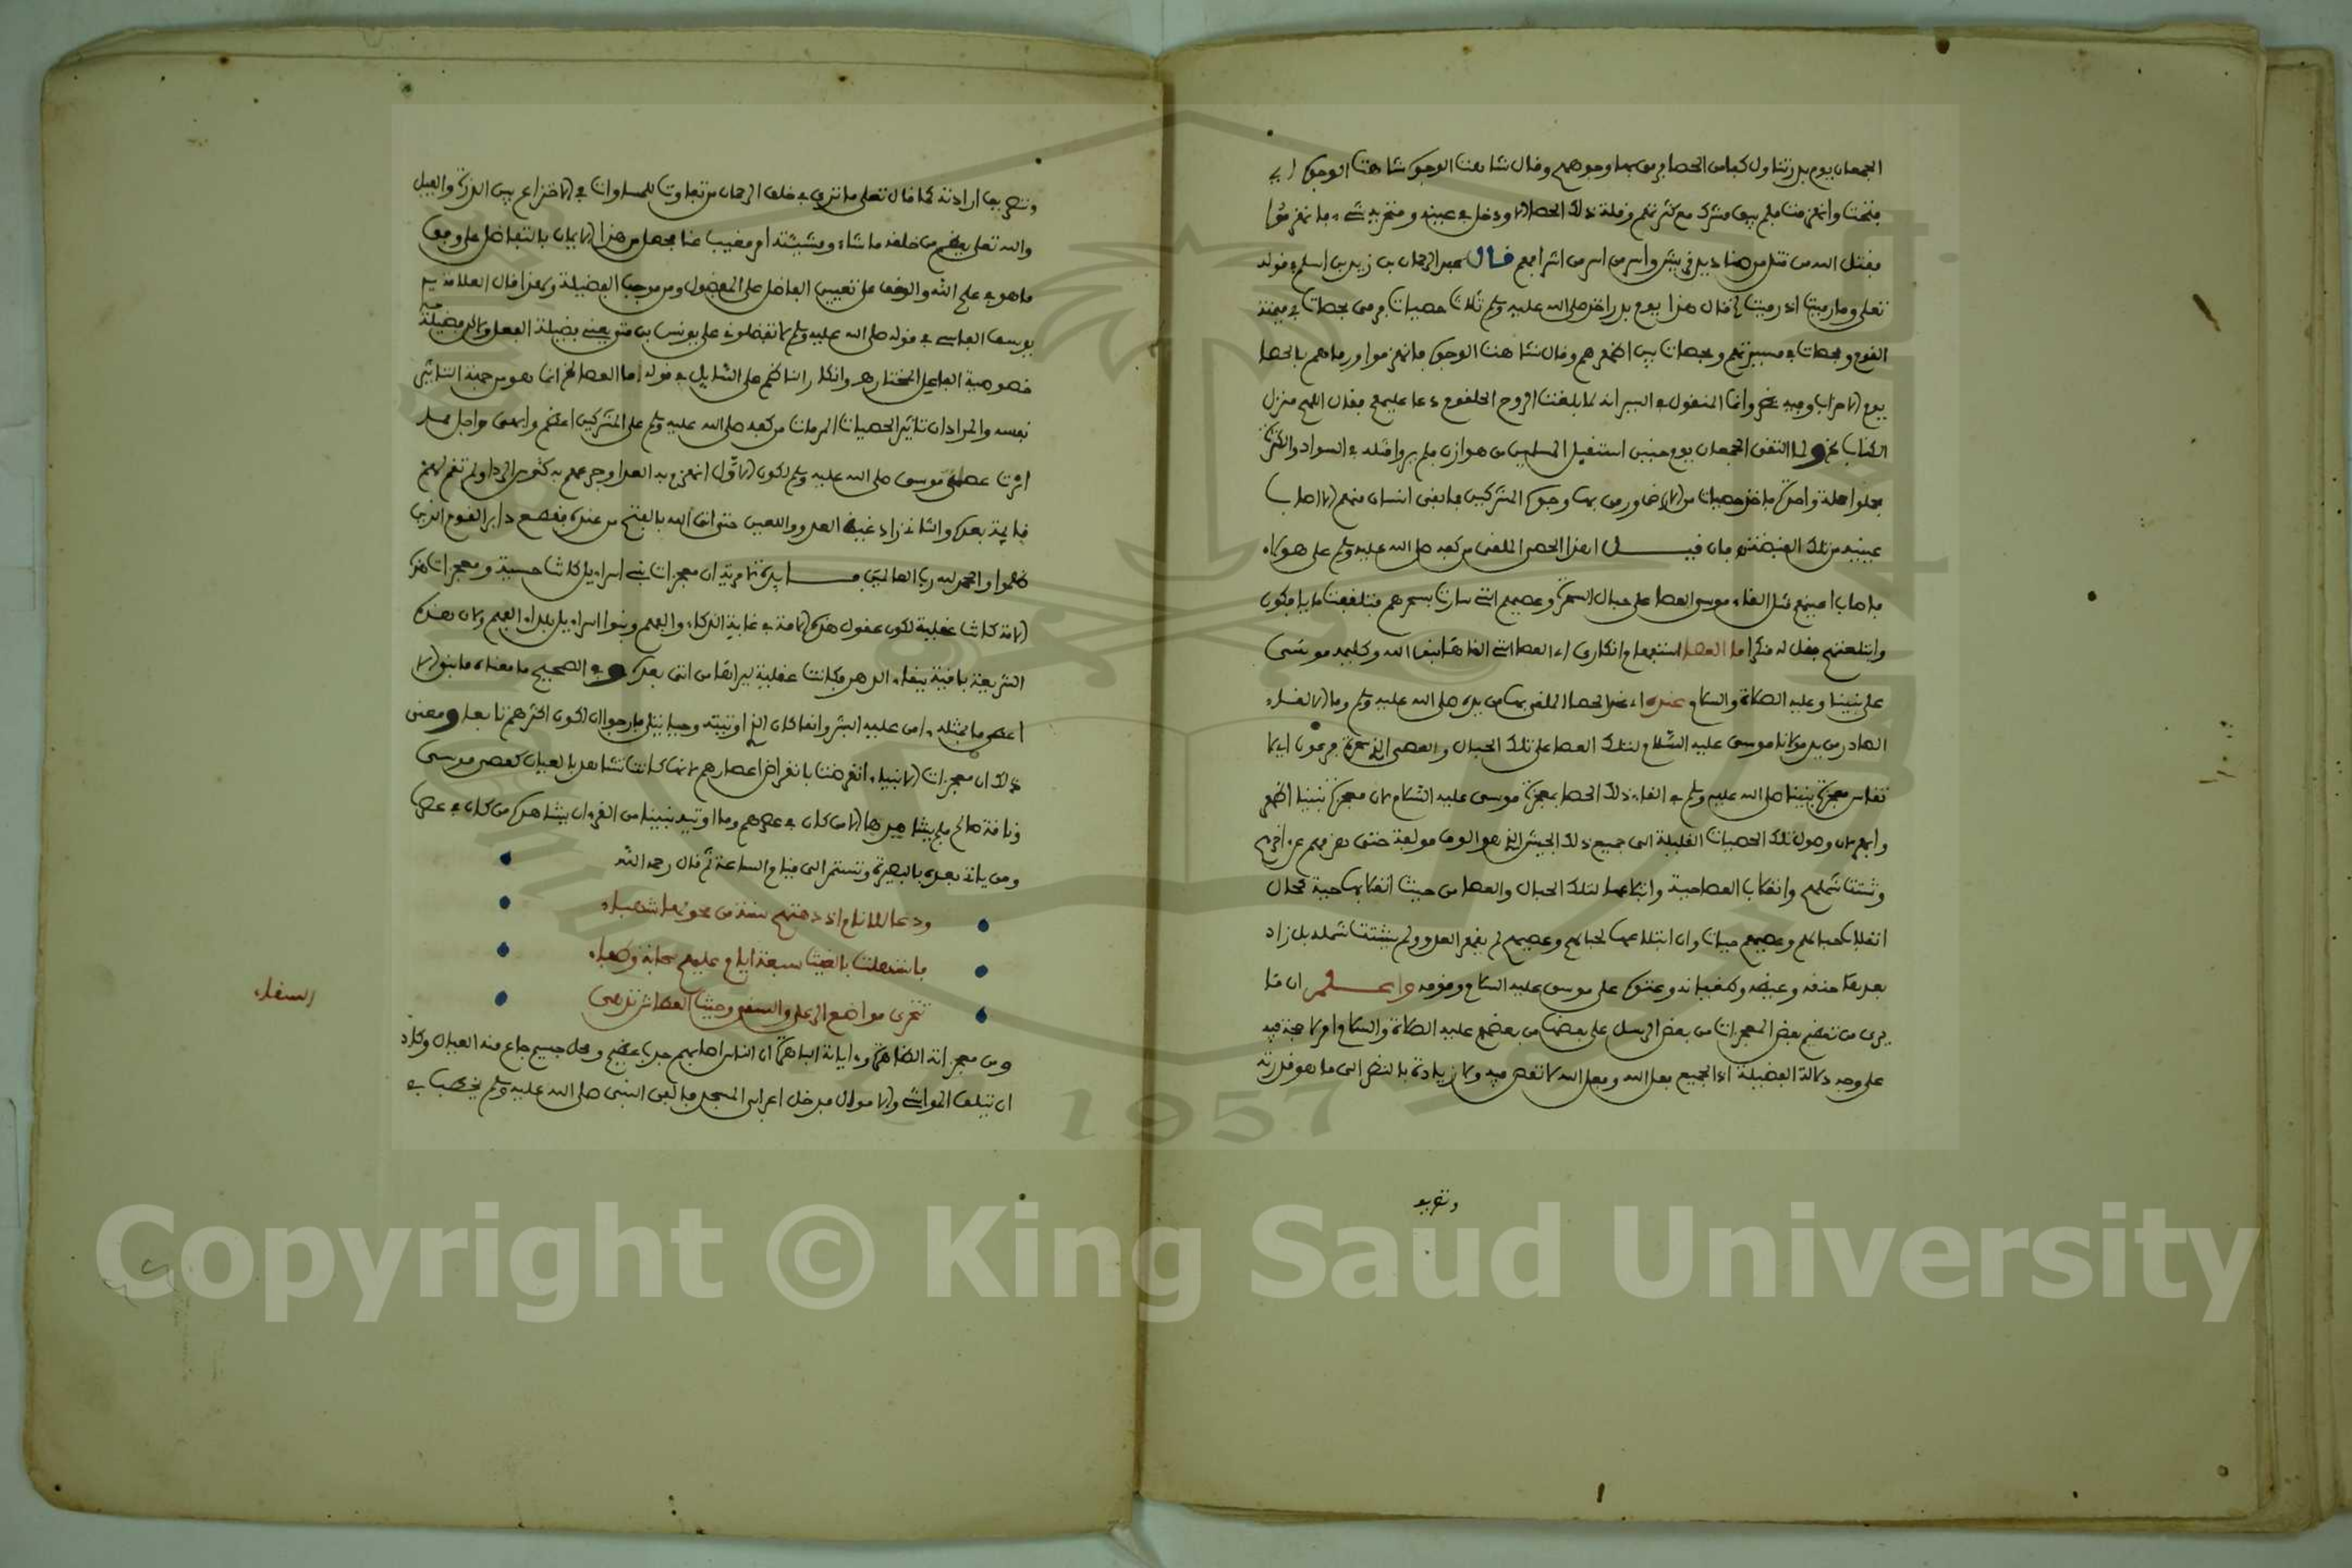 الجمعان يوم بدر تناول كفا من الحصا فرمى بها وجوههم وقال شاهت الوجوه شاهت الوجوه اي
قبحت وانهزمت فلم يبق مشرك مع كثرتهم وقلة ذلك الحصا الا ودخل في عينيه ومنخريه شيء فانهزموا
فقتل الله من قتل من صناديد قريش واسر من اسر من اشرافهم قال عبد الرحمان بن زيد بن اسلم في قوله
تعلى وما رميت اذ رميت قال هذا يوم بدر اخذ صلى الله عليه وسلم ثلاث حصيات فرمى بحصات في ميمنة
القوم وبحصات في ميسرتهم وبحصات بين اظهرهم وقال شاهت الوجوه فانهزموا ورماهم بالحصا
يوم الاحزاب وفيه وانما المنقول في السير انه لما بلغت الروح الحلقوم دعا عليهم فقال اللهم منزل
الكتاب ولما التقى الجمعان يوم حنين استقبل المسلمين من هوازن ما لم يروا مثله في السواد والكثرة
فحملوا حملة واحدة فاخذ حصيات من الارض ورمى بها وجوه المشركين فما بقي انسان منهم الا اصاب
عينيه من تلك القبضة فان قيل اهذا الحصى الملقى من كفه صلى الله عليه وسلم على هولاء
فاصاب اعينهم مثل القاء موسى العصا على حبال السحرة وعصيهم التي سارت بسحرهم فتلقفت ما يافكون
وابتلعتهم فقل له منكرا ما العصا استفهام انكاري اي العصا التي القاها نبي الله وكليمه موسى
على نبينا وعليه الصلاة والسلام عنده اي عند الحصا الملقى بها من يده صلى الله عليه وسلم وما الالقاء
الصادر من يد مولانا موسى عليه السلام لتلك العصا على تلك الحبال والعصي التي سحرة فرعون اي لا
تقاس معجزة نبينا صلى الله عليه وسلم في القاء ذلك الحصا بمعجزة موسى عليه السلام لان معجزة نبينا اظهر
وابهر لان وصول تلك الحصيات القليلة الى جميع ذلك الجيش الذي هو الوف مولفة حتى هزمهم عن اخرهم
وتشتت شملهم وانقلاب العصا حية وابتلاعها لتلك الحبال والعصا من حيث انقلابها حية محال
انقلاب حبالهم وعصيهم حيات وان ابتلاعها لحبالهم وعصيهم لم يقهر العدو ولم يتشتت شمله بل زاد
بعدها حنقه وغيظه وطغيانه وعتوه على موسى عليه السلام وقومه واعلم ان ما
يرى من تعظيم بعض المعجزات من بعض الرسل على بعضها من بعضهم عليه الصلاة والسلام امر لا حجة فيه
على وجه دلالة الفضيلة اذ الجميع بفعل الله وفعل الله لا نقص فيه ولا زيادة بالنظر الى ما هو قدرته
وتعريف
وتعريف ارادته كما قال تعلى ما ترى في خلق الرحمان من تفاوت للمساوات في الاختراع بين الذرة والفيل
والله تعلى يعظم من خلقه ما شاء ومشيئته امر مغيب عنا فحصل من هذا الايمان بالتفاضل على وفق
ما هو في علم الله والوقف عن تعيين الفاضل على المفضول ومن موجب الفضيلة ولهذا قال العلامة سيدي
يوسف الفاسي في قوله صلى الله عليه وسلم لا تفضلوني على يونس بن متى يعني بفضيلة الفعل والا ففضيلة
خصوصية الفاعل المختار هي وانكار الناظم على السائل في قوله ما العصا الخ انما هو من جهة التاثير
نفسه والمراد ان تاثير الحصيات المرمات من كفه صلى الله عليه وسلم على المشركين اعظم وابهى واجل مما
اثرت عصى موسى صلى الله عليه وسلم لكون الاول انهزم به العدا وجرعهم به كئوس الردا ولم تقم لهم
قايمة بعده والثاني زاد غيظ العدو واللعين حتى اتى الله بالفتح من عنده فقطع دابر القوم الذين
ظلموا والحمد لله رب العالمين فايدة لا مرية ان معجزات بني اسراءيل كانت حسية ومعجزات هذه
الامة كانت عقلية لكون عقول هذه الامة في غاية الذكاء والفهم وبنوا اسراءيل بلداء الفهم ولان هذه
الشريعة باقية ببقاء الدهر فكانت عقلية ليراها من اتى بعده و في الصحيح ما معناه ما من نبي الا
اعطي ما مثله ءامن عليه البشر وانما كان الذي اوتيته وحيا يتلى فارجوا ان اكون اكثرهم تابعا ومعنى
ذلك ان معجزات الانبياء انقرضت بانقراض اعصارهم لانها كانت تشاهد بالعيان كعصى موسى
وناقة صالح فلم يشاهدها الا من كان في عصرهم وما اوتيه نبينا من القرءان يشاهده من كان في عصره
ومن ياتي بعده بالبصيرة وتستمر الى قيام الساعة ثم قال رحمه الله
ودعا للانام اذ دهمتهم سنة من محولها شهباء
فاستهلت بالغيث سبعة ايام عليهم سحابة وطفاء
تتحرى مواضع الرعي والسقي وحيث العطاش توهى
السقاء
ومن معجزاته الظاهرة وءاياته الباهرة ان الناس اصابهم جدب عظيم ومحل جسيم جاع منه العيال وكاد
ان تتلف المواشي والاموال فدخل اعرابي المسجد فالفى النبي صلى الله عليه وسلم يخطب في
Copyright © King Saud University
1957